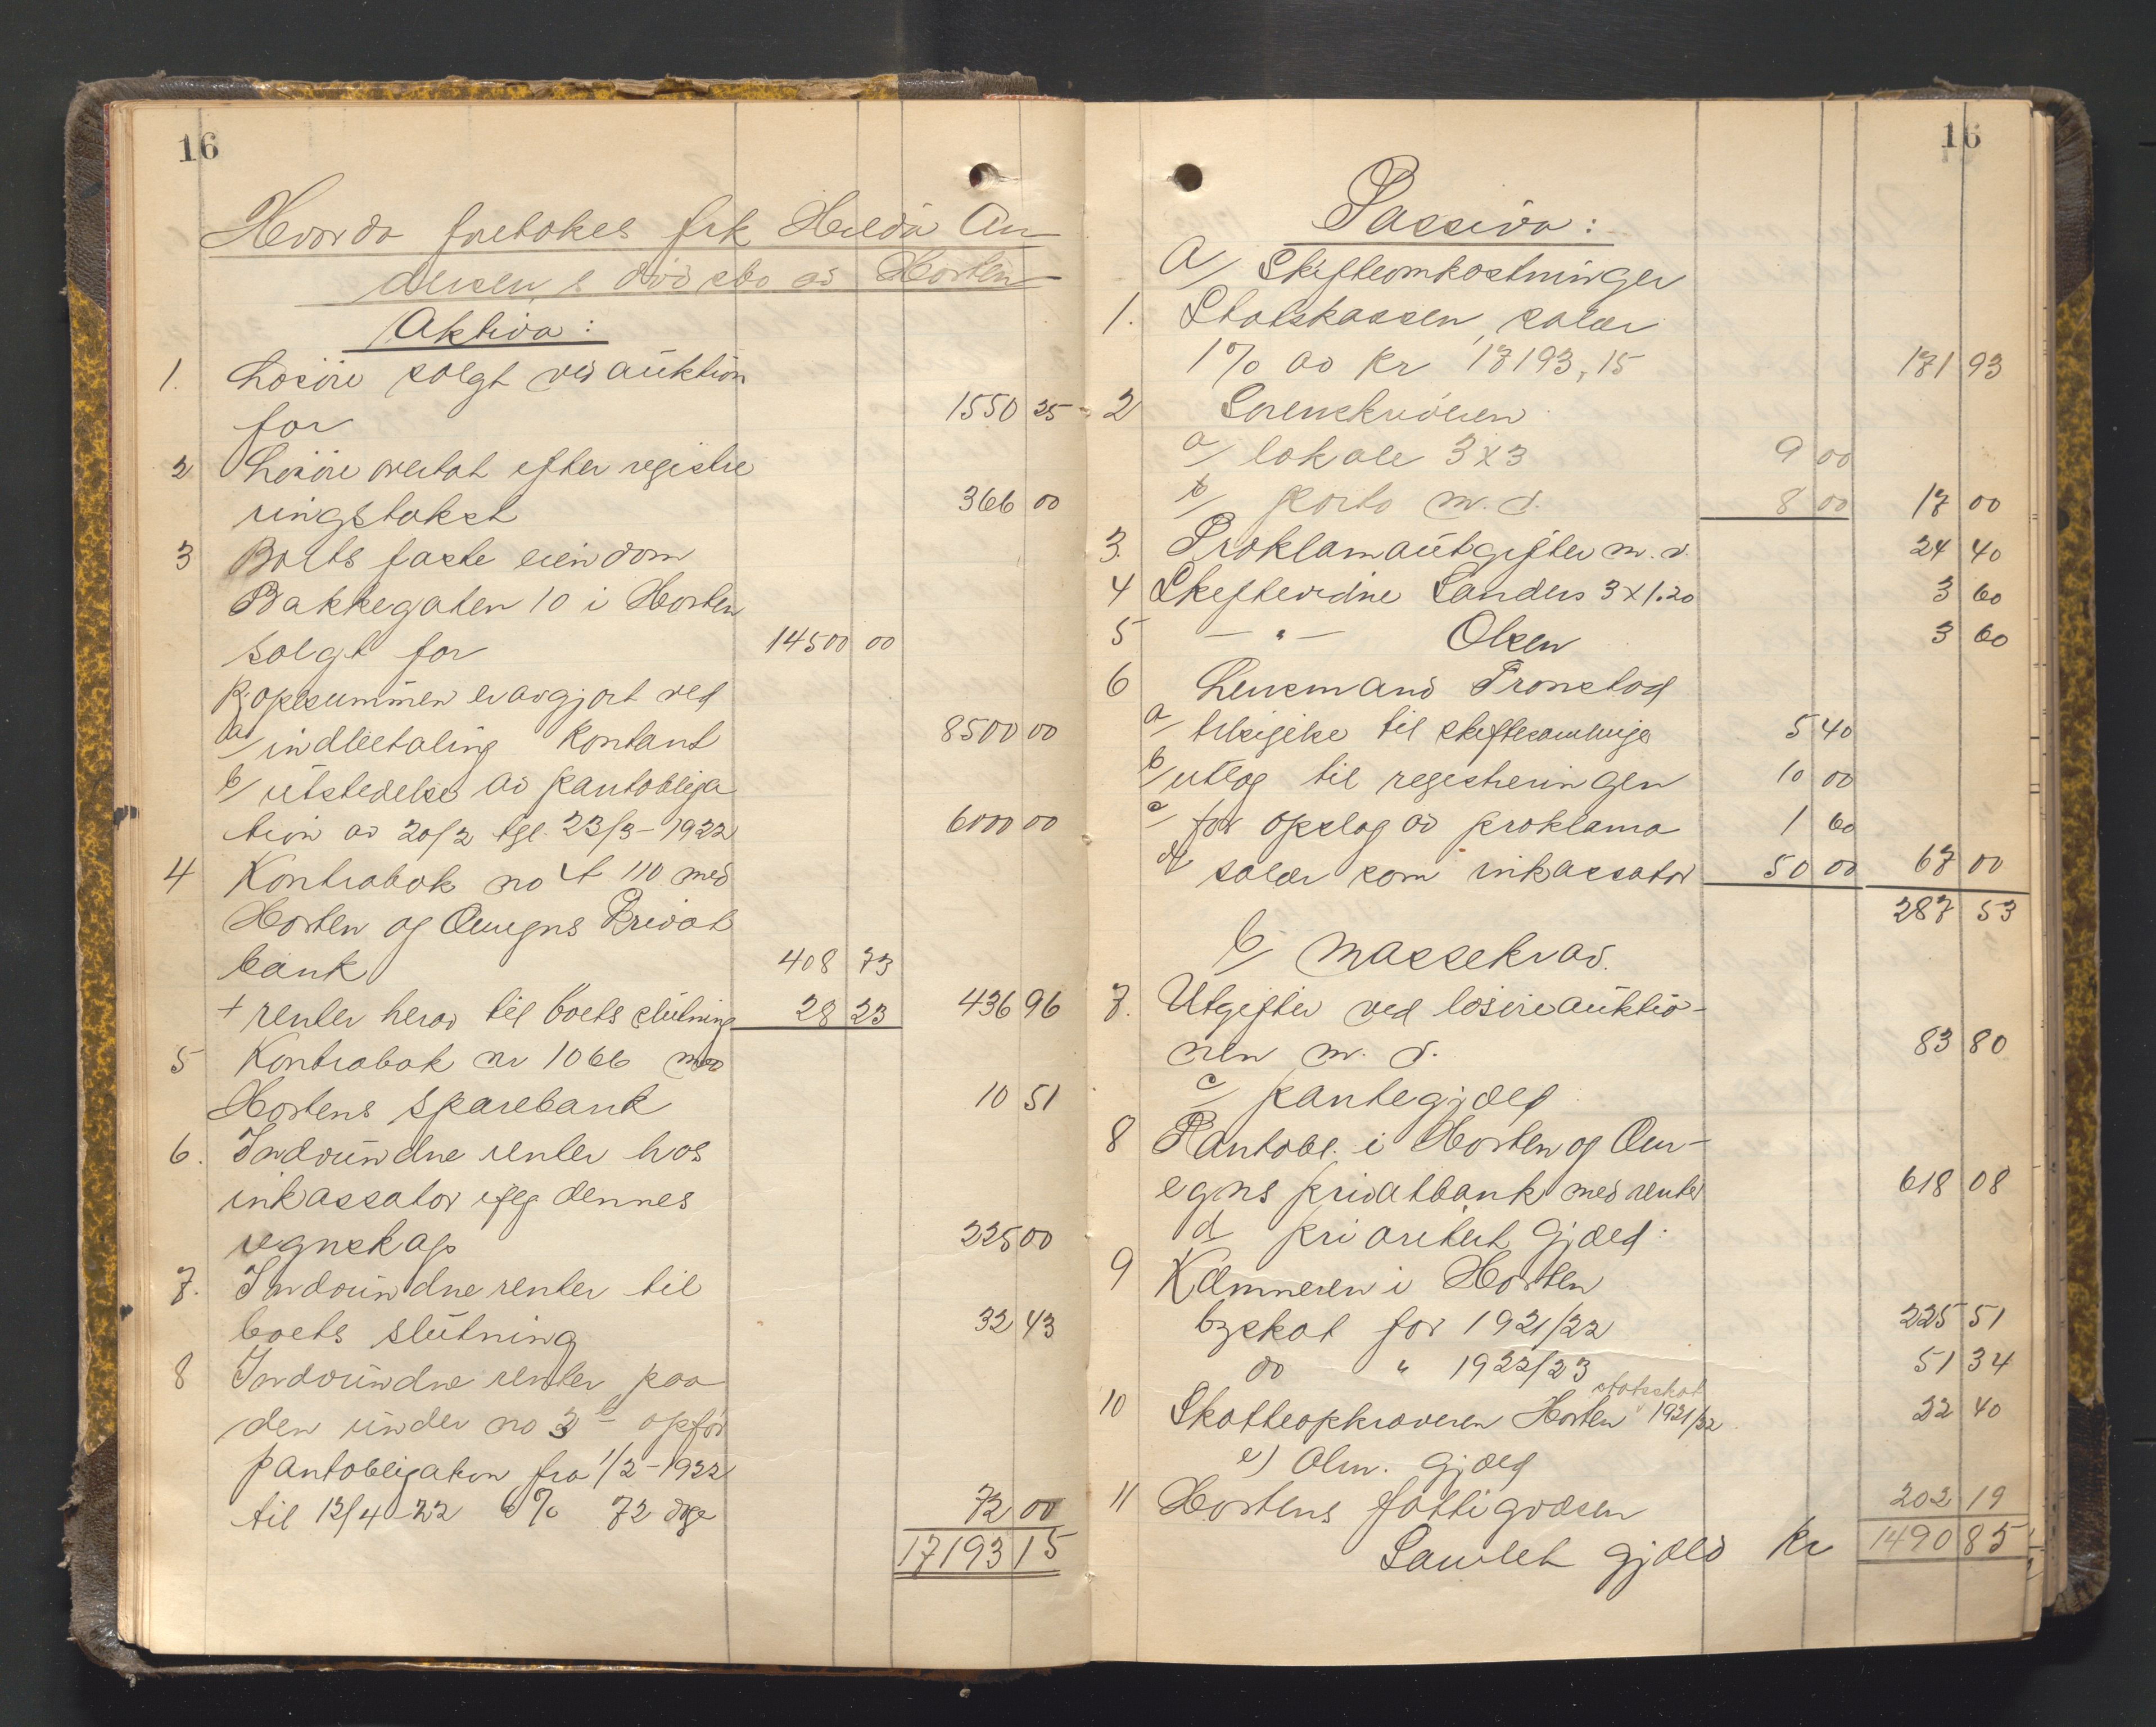 16
Hvorda foretokes frk Hilda An
dersens dødsbo av Horten
Aktiva:
1. Løsøre solgt ved auktion
for 1550 25
2 Løsøre overtat efter registre
ringstakst 366 00
3 Boets faste eiendom
Bakkegaten 10 i Horten
solgt for 14500 00
Kjøpesummen er avgjort ved
a/ indbetaling kontant 8500 00
b/ utstedelse av pantobliga
tion av 20/2 tgl. 23/3-1922 6000 00
4 Kontrabok no 110 med
Horten og Omegns Privat
bank 408 73
+ renter herav til boets slutning 28 23 436 96
5 Kontrabok nr 1066 med
Hortens Sparebank 10 51
6. Indvundne renter hos
inkassator ifølg dennes
regnskap 225 00
7. Indvundne renter til
boets slutning 32 43
8 Indvundne renter paa
den under no 3 b opfør
pantobligation fra 1/2-1922
til 12/4-22 6% 72 dge 72 00
17193 15
16
Passiva:
a/ Skifteomkostninger
1. Statskassen, salær
1% av kr 17193,15 171 93
2 Sorenskriveren
a/ lokale 3x3 9 00
b/ porto m.v. 8 00 17 00
3. Proklamautgifter m.v. 24 40
4 Skiftevidne Sanders 3x1.20 3 60
5 — " — Olsen 3 60
6 Lensmand Tronstad
a/ tilsigelse til skiftesamlinger 5 40
b/ utlæg til registreringen 10 00
c/ for opslag av proklama 1 60
d/ salær som inkassator 50 00 67 00
287 53
b/ Massekrav.
7. Utgifter ved løsøreauktio-
nen m.v. 83 80
c/ pantegjæld
8 Pantobl. i Horten og Om-
egns privatbank med renter 618 08
d prioritert gjæld:
9 Kæmneren i Horten
byskat for 1921/22 225 51
do " 1922/23 51 34
statsskat
10 Skatteopkræveren Horten 1921/22 22 40
e) Alm. gjæld
11 Hortens fattigvæsen 202 19
Samlet gjæld kr 1490 85